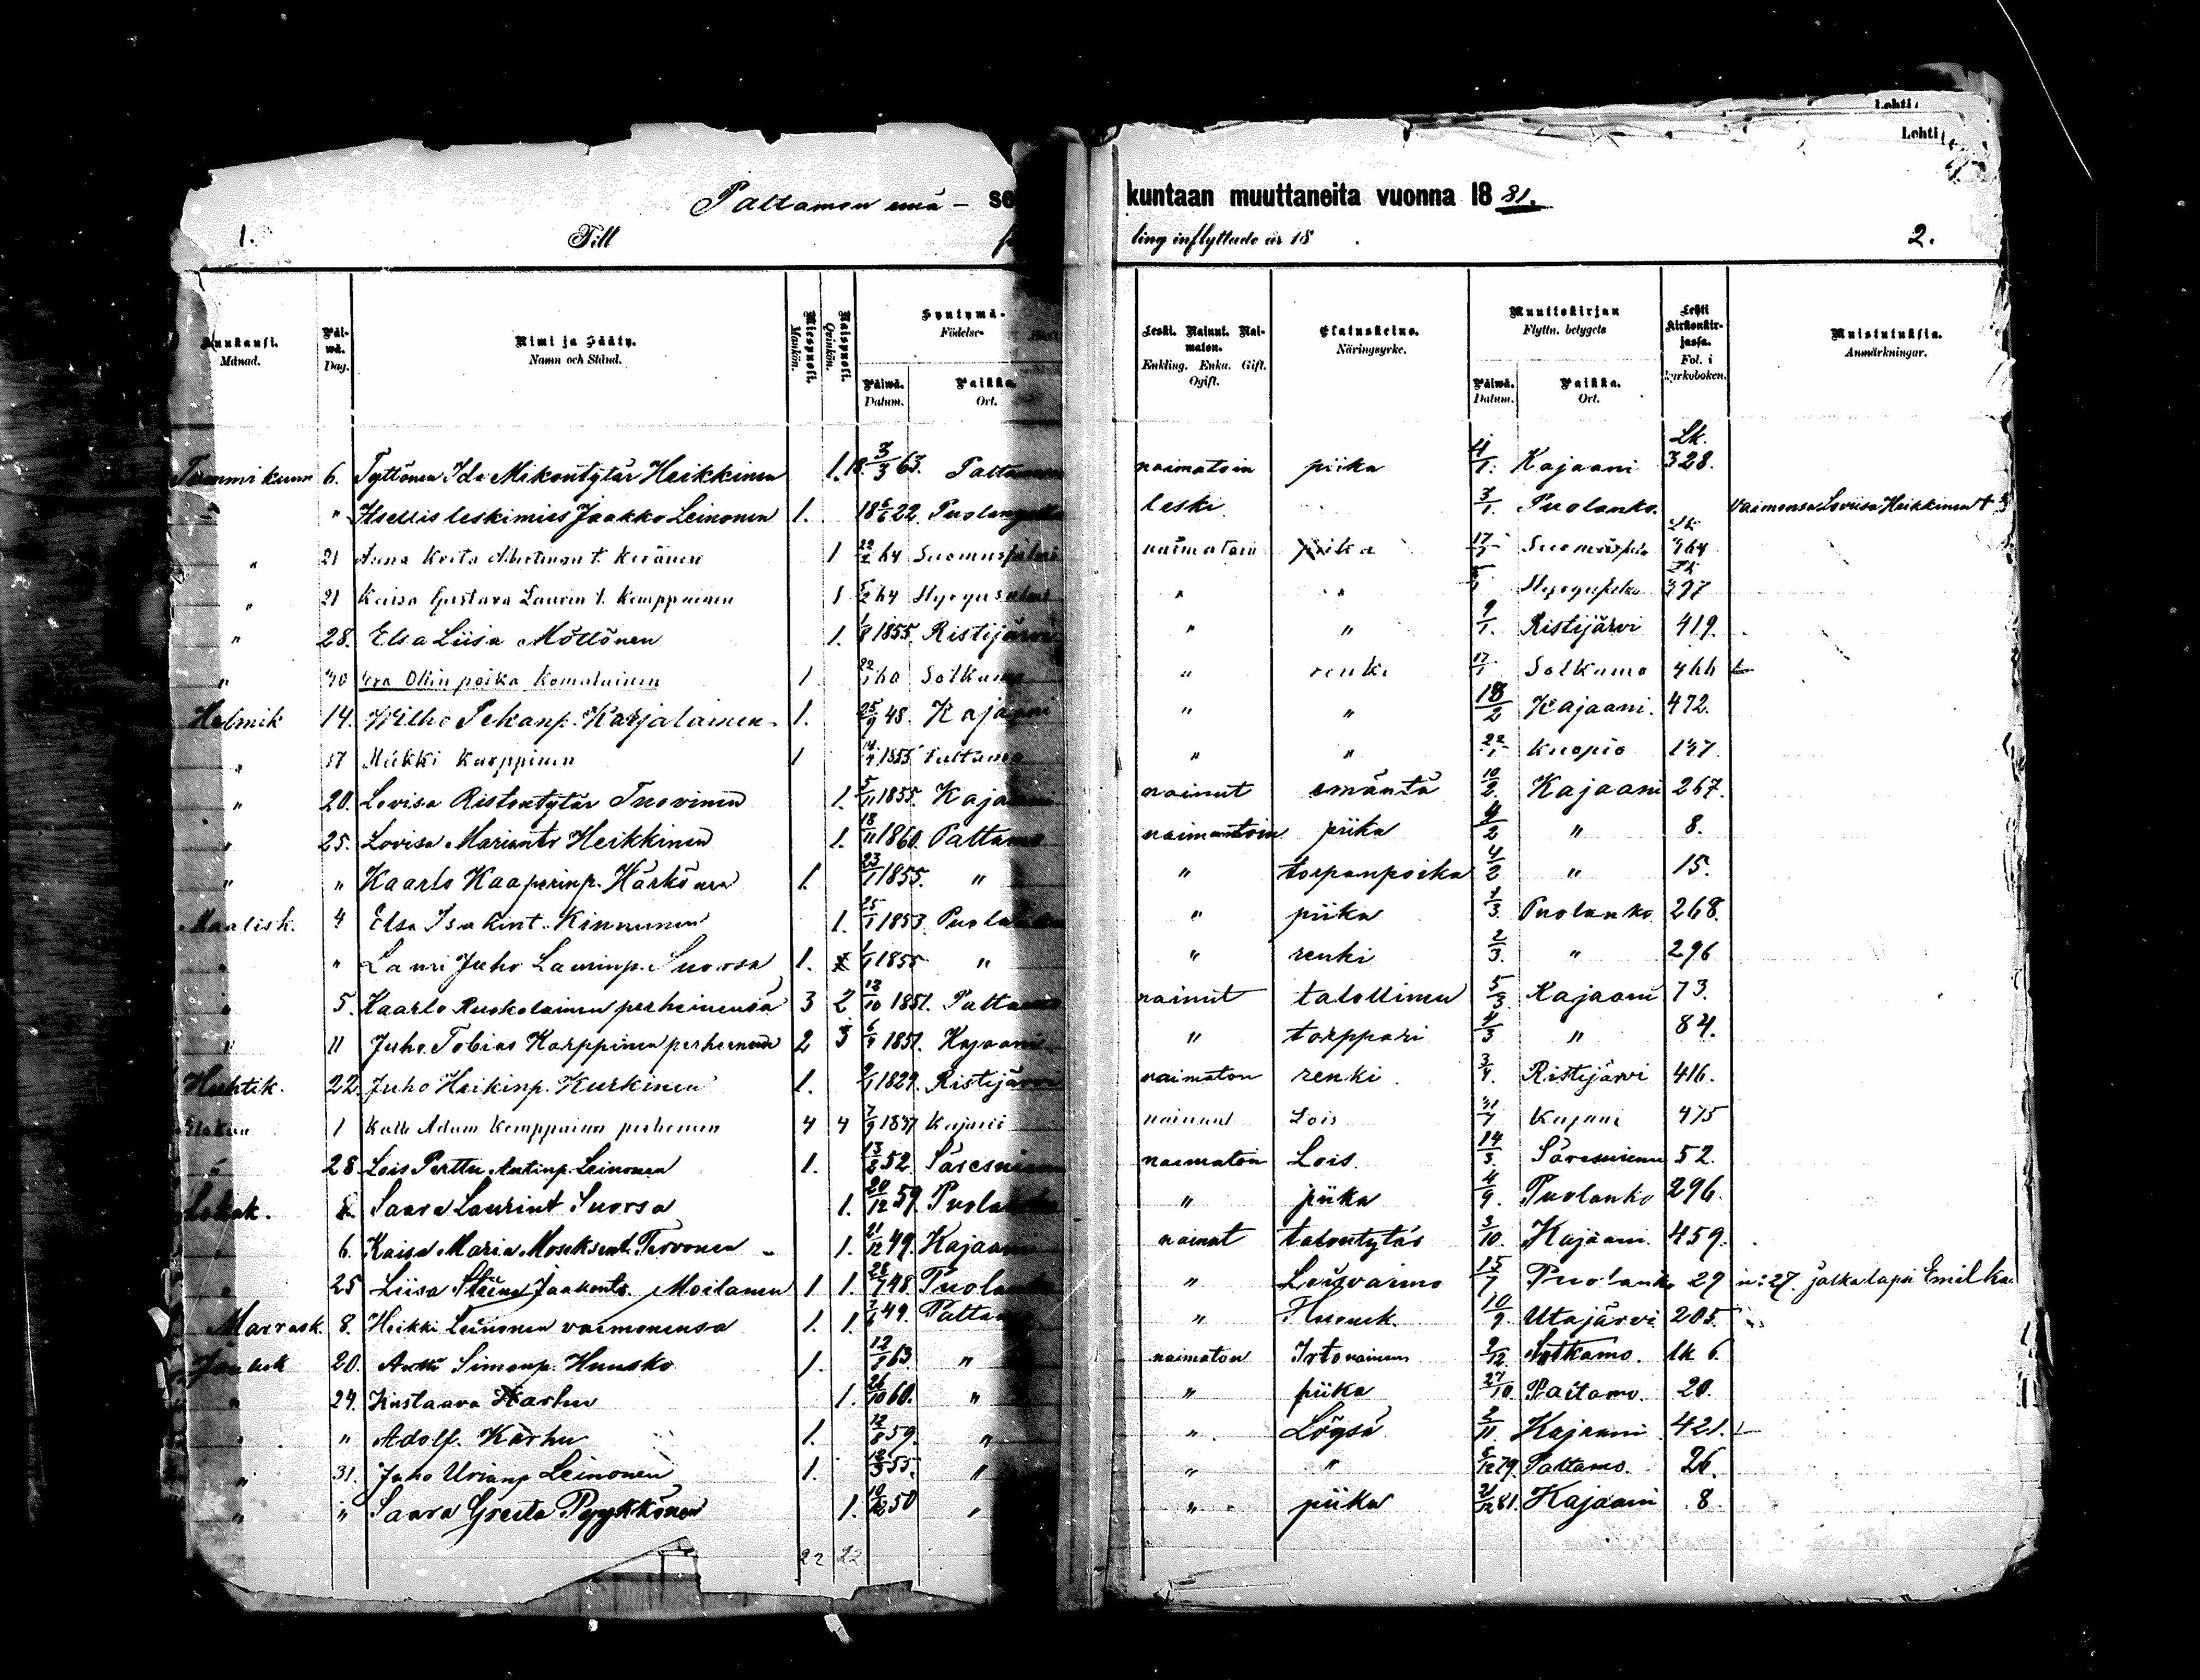 Lehti
Lehti
Paltamon emä - se kuntaan muuttaneita vuonna 18 81.
1. Till ling inflyttade år 18 . 2.
Kuukausi. Månad.
Päiwä. Dag.
Nimi ja Sääty. Namn och Stånd.
Miespuoli. Mankön.
Naispuoli. Qvinkön.
Syntymä- Födelse-
Päiwä. Datum.
Paikka. Ort.
Leski. Nainut. Naimaton. Enkling. Enka. Gift. Ogift.
Elatuskeino. Näringsyrke.
Muuttokirjan Flyttn. betygets
Päiwä. Datum.
Paikka. Ort.
Lehti Kirkonkirjassa. Fol. i kyrkoboken.
Muistutuksia. Anmärkningar.
Tammikuun 6. Tyttönen Ida Mikontytär Heikkinen 1. 18 3/3 63. Paltamo naimatoin piika 4/1. Kajaani Lk. 328.
" Itsellis leskimies Jaakko Leinonen 1. 18 6/6 22. Puolangalla leski 3/1 Puolanko. vaimonsa Loviisa Heikkinen †
" 21 Anna Kreta t. Keränen 1 22/2 64 Suomussalmi naimatoin piika 17/1 464
" 21 Kaisa Gustava Laurin t. Kemppainen 1 64 Hyrynsalmi " " 397
" 28. Elsa Liisa Möttönen 1. 1/8 1855. Ristijärvi " " 9/1. Ristijärvi 419.
" 30 Olin poika Komulainen 1 22/1 60 Sotkamo " renki 17/1 Sotkamo 466
Helmik 14. Wilho Pekanp. Karjalainen 1. 25/9 48. Kajaani " " 18/2 Kajaani. 472.
" 17 Mikki Karppinen 1 1855 Paltamo " " 22/1 Kuopio 137
" 20. Lovisa Ristontytär Tuovinen 1. 5/11 1855. Kajaani nainut emäntä 10/2. Kajaani 267.
" 25. Lovisa Mariants Heikkinen 1. 18/11 1860. Paltamo naimatoin piika 4/2 " 8.
" " Kaarlo Kaaperinp. Härkönen 1. 23/1 1855. " " torpanpoika 4/2 " 15.
Maalisk. 4 Elsa Isakint. Kinnunen 1. 25/1 1853. Puolanko " piika 1/3. Puolanko 268.
" " Lauri Juho Laurinp. Suorsa 1. 1855 " " renki 2/3. " 296
" 5. Kaarlo Ruokolainen perheinensä 3 2 13/10 1851. Paltamo nainut talollinen 5/3. Kajaani 73.
" 11 Juho Tobias Karppinen perheineen 2 3 1851. Kajaani " torppari 4/3 " 84.
Huhtik. 22. Juho Heikinp. Kurkinen 1. 1829. Ristijärvi naimaton renki 3/4. Ristijärvi 416.
Elokuu 1 Kalle Adam Kemppainen perheineen 4 4 1837 Kajaani nainut Lois Kajaani 475
28. Lois Perttu Antinp. Leinonen 1. 13/2 52. Säresniemi naimaton Lois. 14/3. Säresniemi 52.
Lokak. Saara Laurint Suorsa 1. 20/12 59. Puolanko " piika 4/9. Puolanko 296.
" 6. Kaisa Maria Moseksent. Tervonen 1. 21/12 49. Kajaani nainut talontytär 3/10. Kajaani. 459.
" 25 Liisa Stiina Jaakonts. Moilanen 1 1. 48 Puolanko " Loisvaimo 15/7 Puolanko 29 n: 27. jälkalapsi Emil
Marrask. 8. Heikki Leinonen vaimonensa 1. 1. 49. Paltamo " 10/9. Utajärvi 205.
Jouluk 20. Antti Simonp. Hunsko 1. 12/8 63 " naimaton Irtonainen 9/12. Sotkamo. lk 6.
" 24. Kustaava Karhu 1. 26/10 60. " " piika 27/10. Paltamo. 20.
" " Adolf. Karhu 1. 12/8 59. " " Löysä 2/11. Kajaani 421.
" 31. Juho Urianp Leinonen 1. 12/3 55. " " " 5/12 79. Paltamo. 26.
" " Saara Greeta Pyykkönen 1. 50 " " piika 21/12 81. Kajaani 8.
22 22